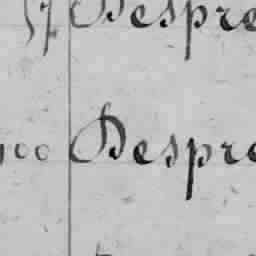 57 Despre
100 Despre